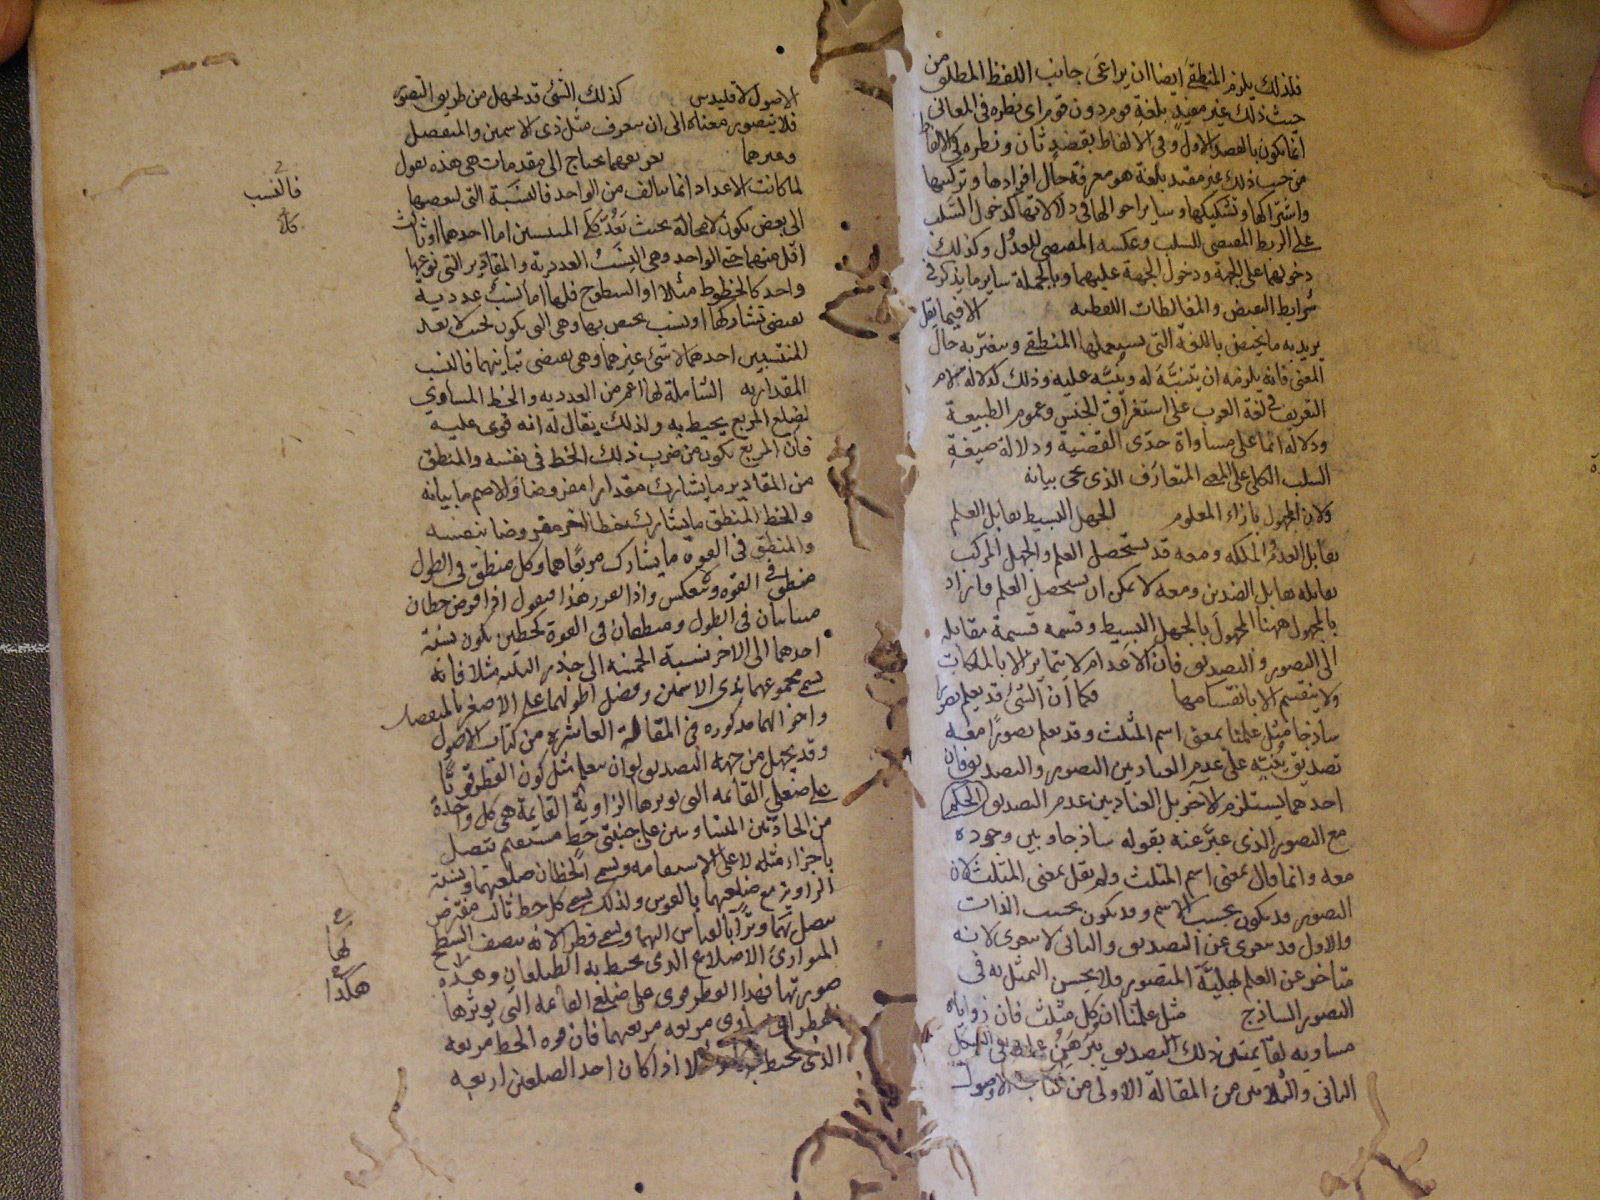 فلذلك يلزم المنطقي ايضا ان يراعى جانب اللفظ المطلق من
حيث ذلك غير مقيد بلغة قوم دون قوم اى نظره فى المعانى
انما يكون بالقصد الاول وفى الالفاظ بقصد ثان ونظره فى الالفاظ
من حيث ذلك غير مقيد بلغة هو معرفة حال افرادها وتركيبها
واشتراكها وتشكيكها وساير احوالها فى دلالاتها كدخول السلب
على الربط المقتضى للسلب وعكسه المقتضى للعدول وكذلك
دخولهما على الجهة ودخول الجهة عليهما وبالجملة ساير ما يذكر فى
شرايط النقيض والمغالطات اللفظية الا فيما يقل
يريد به ما يختص باللغة التى يستعملها المنطقى وبتغير به حال
المعنى فانه يلزمه ان يتنبه له وينبه عليه وذلك كدلالة لام
التعريف فى لغة العرب على استغراق الجنس وعموم الطبيعة
ودلالة انما على مساواة حدى القضية ودلالة صيغة
السلب الكلى على المعنى المتعارف الذى يجئ بيانه
ولان المجهول بازاء المعلوم الجهل البسيط يقابل العلم
تقابل العدم والملكة ومعه قد يستحصل العلم والجهل المركب
يقابله تقابل الضدين ومعه لا يمكن ان يستحصل العلم فاراد
بالمجهول ههنا المجهول بالجهل البسيط وقسمه قسمة مقابله
الى التصور والتصديق فان الاعدام لا تتمايز الا بالملكات
ولا ينقسم الا بانقسامها فكما ان الشئ قد يعلم تصورا
ساذجا مثل علمنا بمعنى اسم المثلث وقد يعلم تصورا معه
تصديق ينبه على عدم العناد بين التصور والتصديق فان
احدهما يستلزم الآخر بل العناد بين عدم التصديق الحكم
مع التصور الذى عبر عنه بقوله ساذجا وبين وجوده
معه وانما قال بمعنى اسم المثلث ولم يقل بمعنى المثلث لان
التصور قد يكون بحسب الاسم وقد يكون بحسب الذات
والاول قد يعرى عن التصديق والثانى لا يعرى لانه
متاخر عن العلم بهلية المتصور ولا يحسن التمثل به فى
التصور الساذج مثل علمنا ان كل مثلث فان زواياه
مساويه لقائمتين ذلك التصديق يبرهن عليه فى الشكل
الثانى والثلاثين من المقالة الاولى من كتاب الاصول
الاصول لاقليدس كذلك الشئ قد يجهل من طريق التصور
فلا يتصور معناه الى ان يتعرف مثل ذى الاسمين والمنفصل
وغيرهما تعريفهما يحتاج الى مقدمات هى هذه نقول
لما كانت الاعداد انما تتالف من الواحد فالنسبة التى لبعضها
الى بعض تكون لا محالة بحيث يعد كلا المنتسبين اما احدهما او ثالث
اقل منهما حتى الواحد وهى النسب العددية والمقادير التى نوعها
واحد كالخطوط مثلا او السطوح فلها اما نسب عددية
تقتضى تشاركها او نسب تختص بها وهى التى تكون بحيث لا يعد
المنتسبين احدهما لا شئ غيرهما وهى تقتضى تباينهما فالنسب
المقدارية الشاملة لها اعم من العددية والخط المساوى
لضلع المربع يحيط به ولذلك يقال له انه قوى عليه
فان المربع يكون من ضرب ذلك الخط فى نفسه والمنطق
من المقادير ما يشارك مقدارا مفروضا والاصم ما يباينه
والخط المنطق ما يشارك خطا آخر مفروضا بنفسه
والمنطق فى القوة ما يشارك مربعاهما وكل منطق فى الطول
منطق فى القوة ولا ينعكس واذا تقرر هذا فنقول اذا فرض خطان
متباينان فى الطول ومنطقان فى القوة كخطين يكون نسبة
احدهما الى الآخر نسبة الخمسة الى جذر الثلثة مثلا فانه
يسمى مجموعهما بذى الاسمين وفضل اطولهما على الاصغر بالمنفصل
واخواتهما مذكورة فى المقالة العاشرة من كتاب الاصول
وقد يجهل من جهة التصديق الى ان يتعلم مثل كون القطر قويا
على ضلعى القائمة التى يوترها الزاوية القايمة هى كل واحدة
من الحادثتين المتساويتين على جنبتى خط مستقيم يتصل
باجزاء مثله لا على الاستقامة ويسمى الخطان ضلعيها ونسبة
الزاوية مع ضلعيها بالقوس ولذلك يسمى كل خط ثالث مفترض
يتصل بهما وترا بالقياس اليها ويسمى قطرا لانه ينصف السطح
المتوازى الاضلاع الذى يحيط به الضلعان وهذه
صورتها فهذا القطر قوى على ضلعى القائمة التى يوترها
القطر اى يساوى مربعه مربعيهما فان قوة الخط مربعه
الذى يحيط به مثلا اذا كان احد الضلعين اربعة
فالنسب
لها
هكذا